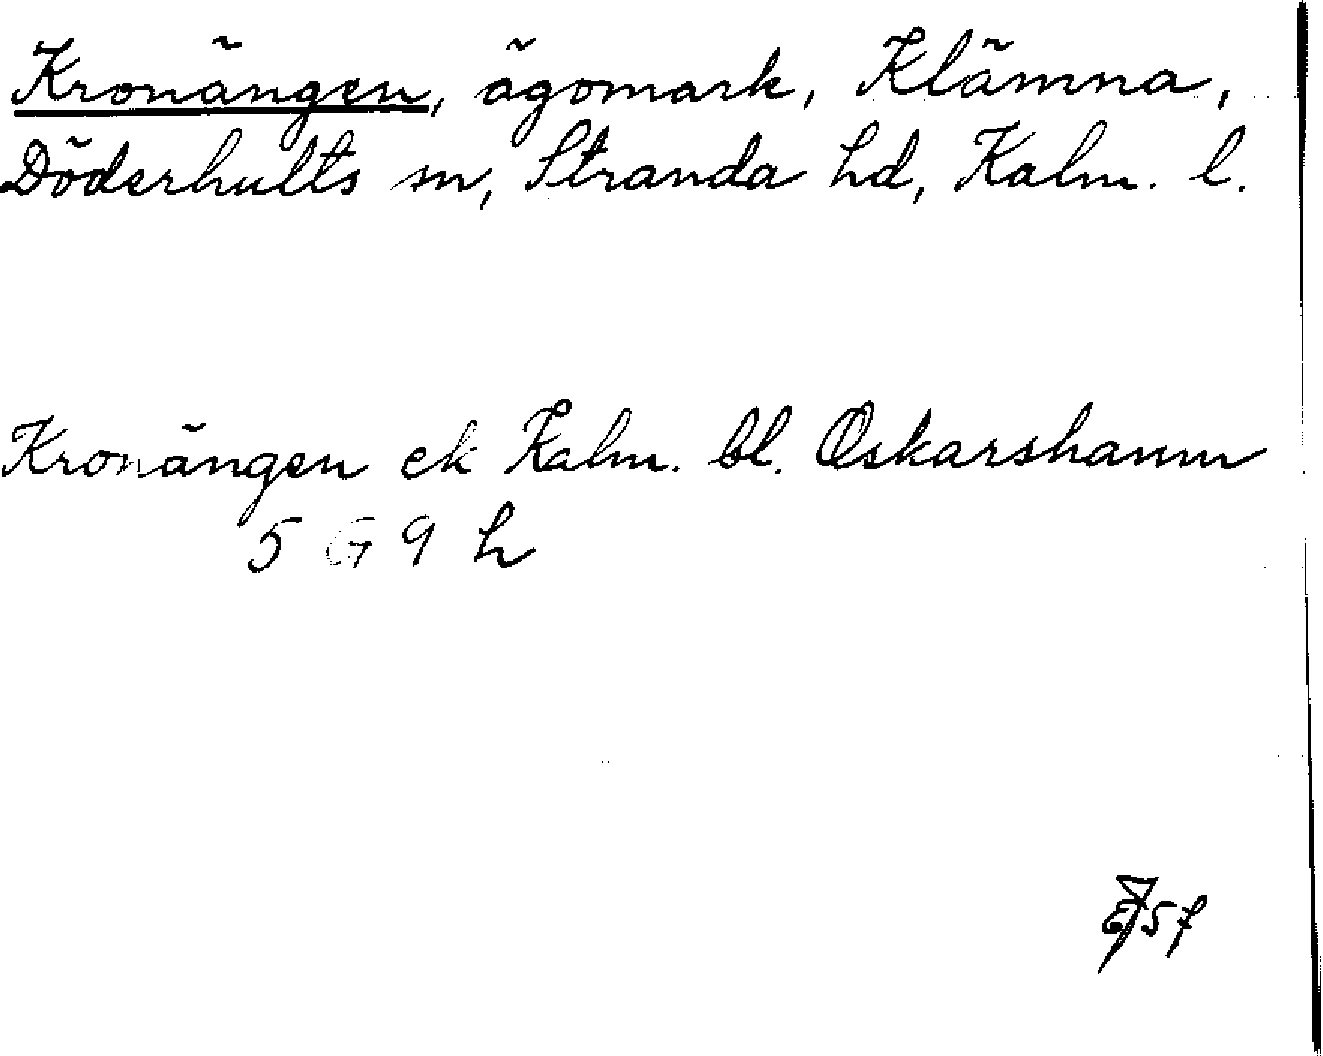 Kronängen, ägomark, Klämna,
Döderhults sn, Stranda hd, Kalm. l.
Kronängen ek Kalm. bl. Oskarshamn
5 G 9 h
57